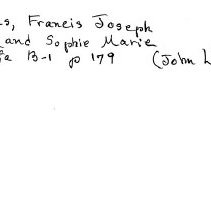 s, Francis Joseph
and Sophie Marie
B-1 p 179 (John L